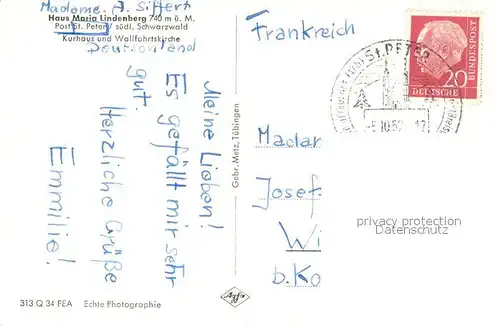 Madame. J. Siffert
Haus Maria Lindenberg 740 m ü. M.
Post St. Peter / südl. Schwarzwald
Kurhaus und Wallfahrtskirche
Deutschland
Meine Lieben!
Es gefällt mir sehr
gut.
Herzliche Grüße
Emmilie!
Gebr. Metz, Tübingen
313 Q 34 FEA Echte Photographie
Agfa
Frankreich
St. PETER
20
DEUTSCHE
BUNDESPOST
Madar
Josef
Wi
b. Ko
privacy protection
Datenschutz